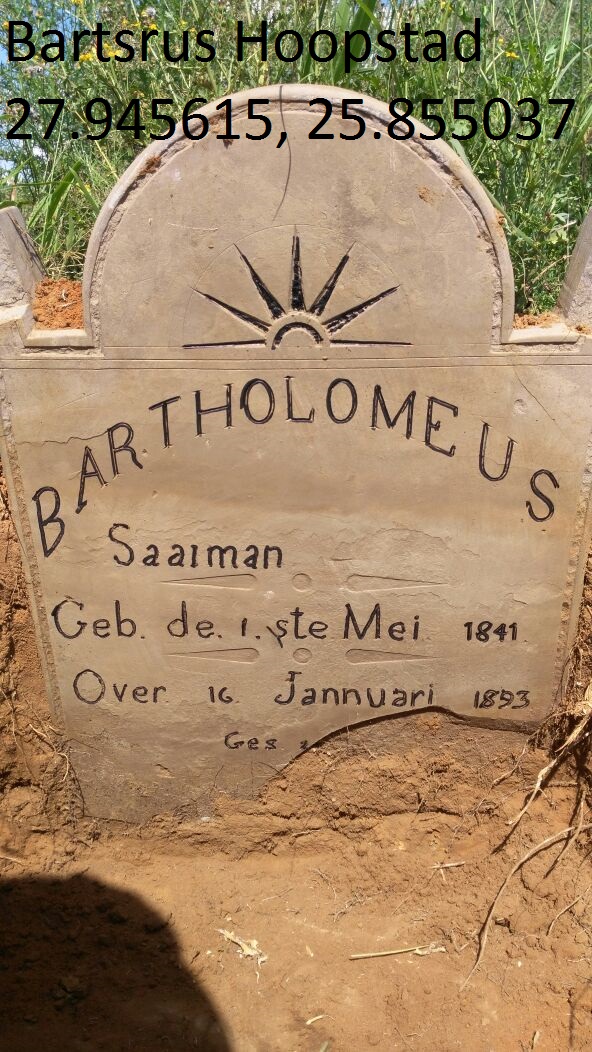 Bartsrus Hoopstad
27.945615, 25.855037
BARTHOLOMEUS
Saaiman
Geb. de. 1.ste Mei 1841
Over 16 Jannuari 1893
Ges